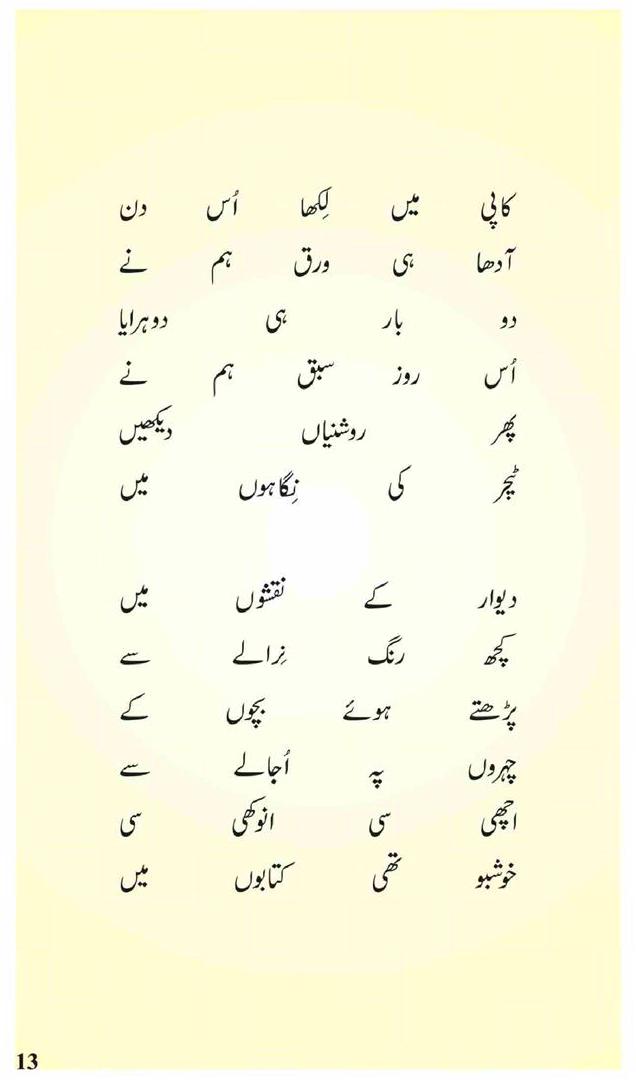 کاپی میں لِکھا اُس دن
آدھا ہی ورق ہم نے
دو بار ہی دوہرایا
اُس روز سبق ہم نے
پھر روشنیاں دیکھیں
ٹیچر کی نِگاہوں میں
دیوار کے نقشوں میں
کچھ رنگ نِرالے سے
پڑھتے ہوئے بچوں کے
چہروں پہ اُجالے سے
اچھی سی انوکھی سی
خوشبو تھی کتابوں میں
13